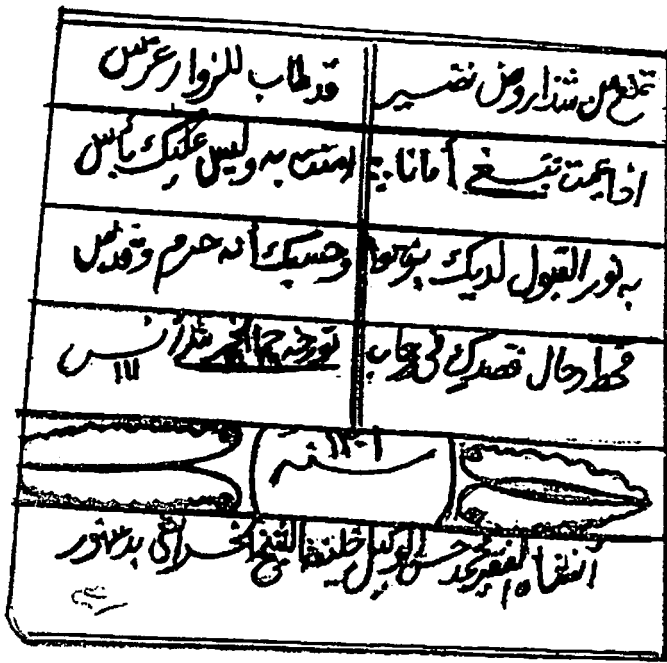 تمتع من شذا روض نضير قد طاب للزوار غرس
اذا يممت تبتغي أمانا به أمنت به وليس عليك بأس
به نور القبول لديك يزهو وحسبك أنه حرم وقدس
فحط رحال قصدك في رحاب تورخه حما الخير أنس
١١١
سنة ١٣٠١
أنشأه الفقير محمد حسن الوكيل خليفة الشيخ الخراشي بدمنهور